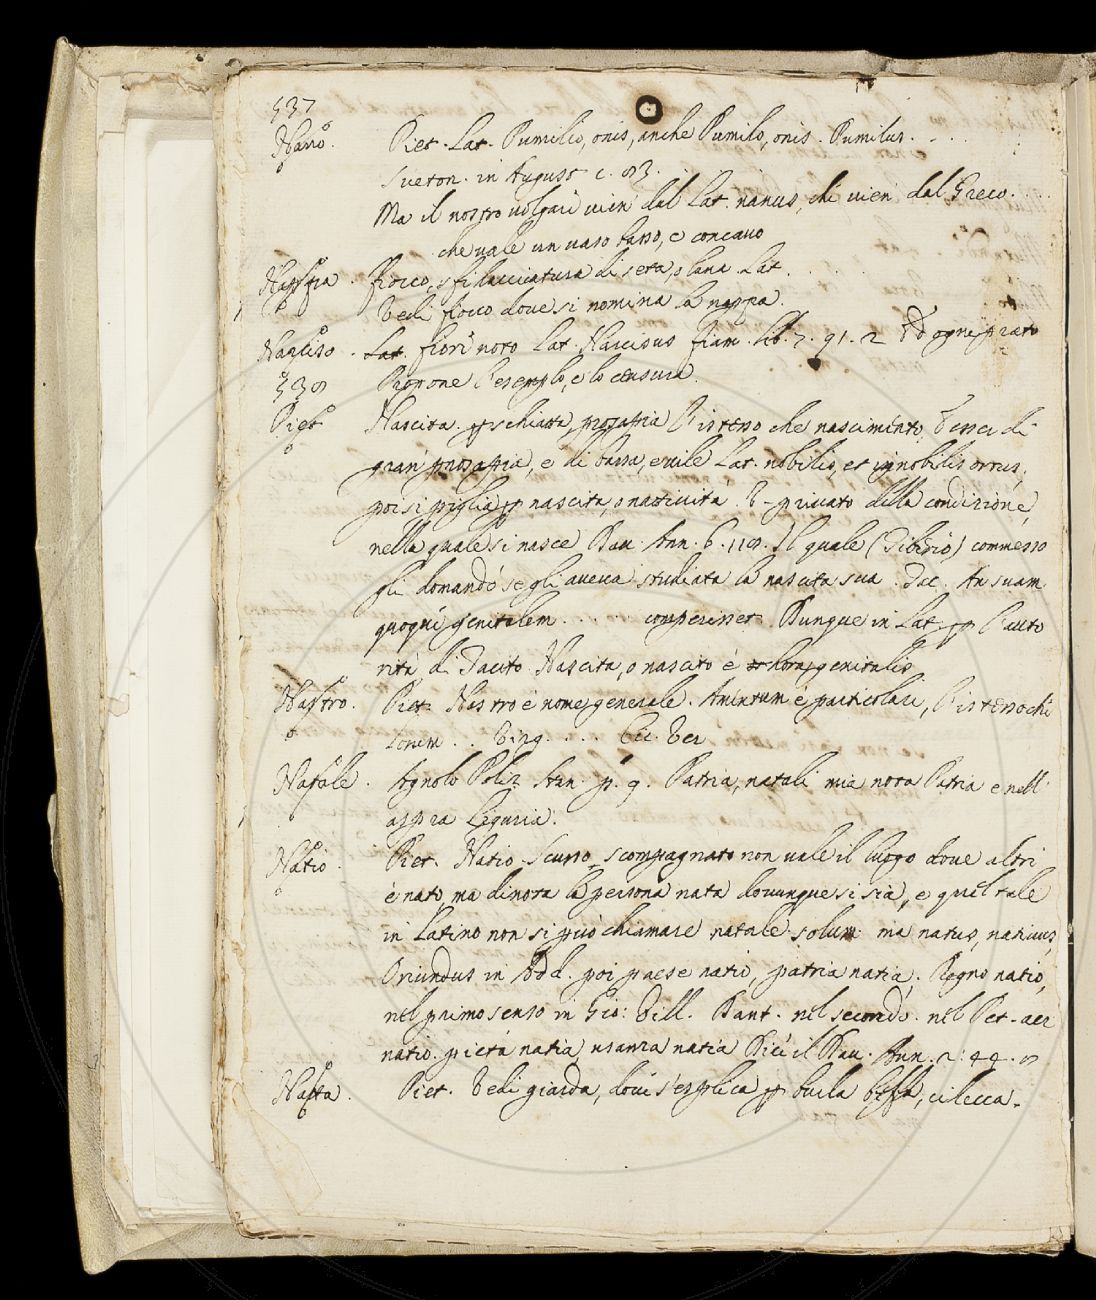 537
Nano. Piet. Lat. Pumilio, onis, anche Pumilo, onis. Pumilus. . .
Sueton. in August c. 83.
Ma il nostro volgare vien dal Lat. nanus, che vien dal Greco. . .
che vale un vaso basso, e concavo
Nappa. fiocco, sfilacciatura di seta, o lana Lat. . . .
Vedi fiocco dove si nomina la nappa.
Narciso. Lat. fiori noto Lat. Narcissus fiam. lib. 7. 91. 2 ogni prato
538 Propone l'esemplo, e lo censura.
Piet Nascita. schiatta, prosapia l'istesso che nascimento, d'esser di
gran prosapia, e di bassa, e vile Lat. nobilis, et ignobilis ortus,
poi si piglia p nascita, o natività privato della condizione,
nella quale si nasce Dav. Ann. 6. 118. Il quale (Tiberio) commesso
gli domandò se gli aveva studiata la nascita sua. Tac. An suam
quoque genitalem . . . comperisset. Dunque in Lat. p l'auto
rità di Tacito Nascita, o nascito è hora genitalis
Nastro. Piet. Nastro è nome generale. Amentum è particolare, l'istesso che
lorum . . Virg. . . . Lic. Ver
Natale. Agnolo Poliz. Stan. p. 9. Patria, natali mia nota Patria e nell'
aspra Liguria.
Natio. Piet. Natio Scusso, scompagnato non vale il luogo dove altri
è nato, ma dinota la persona nata dovunque si sia, e quel tale
in Latino non si può chiamare natale solum ma natus, nativus,
Oriundus in Add. poi paese natio, patria natia, Regno natio,
nel primo senso in Gio: Vill. Dant. nel secondo. nel Pet. aer
natio. pietà natia, usanza natia Dice il Dav. Ann. 2. 44. 8
Natta. Piet. Vedi giarda, dove s'esplica p burla beffa, cilecca.